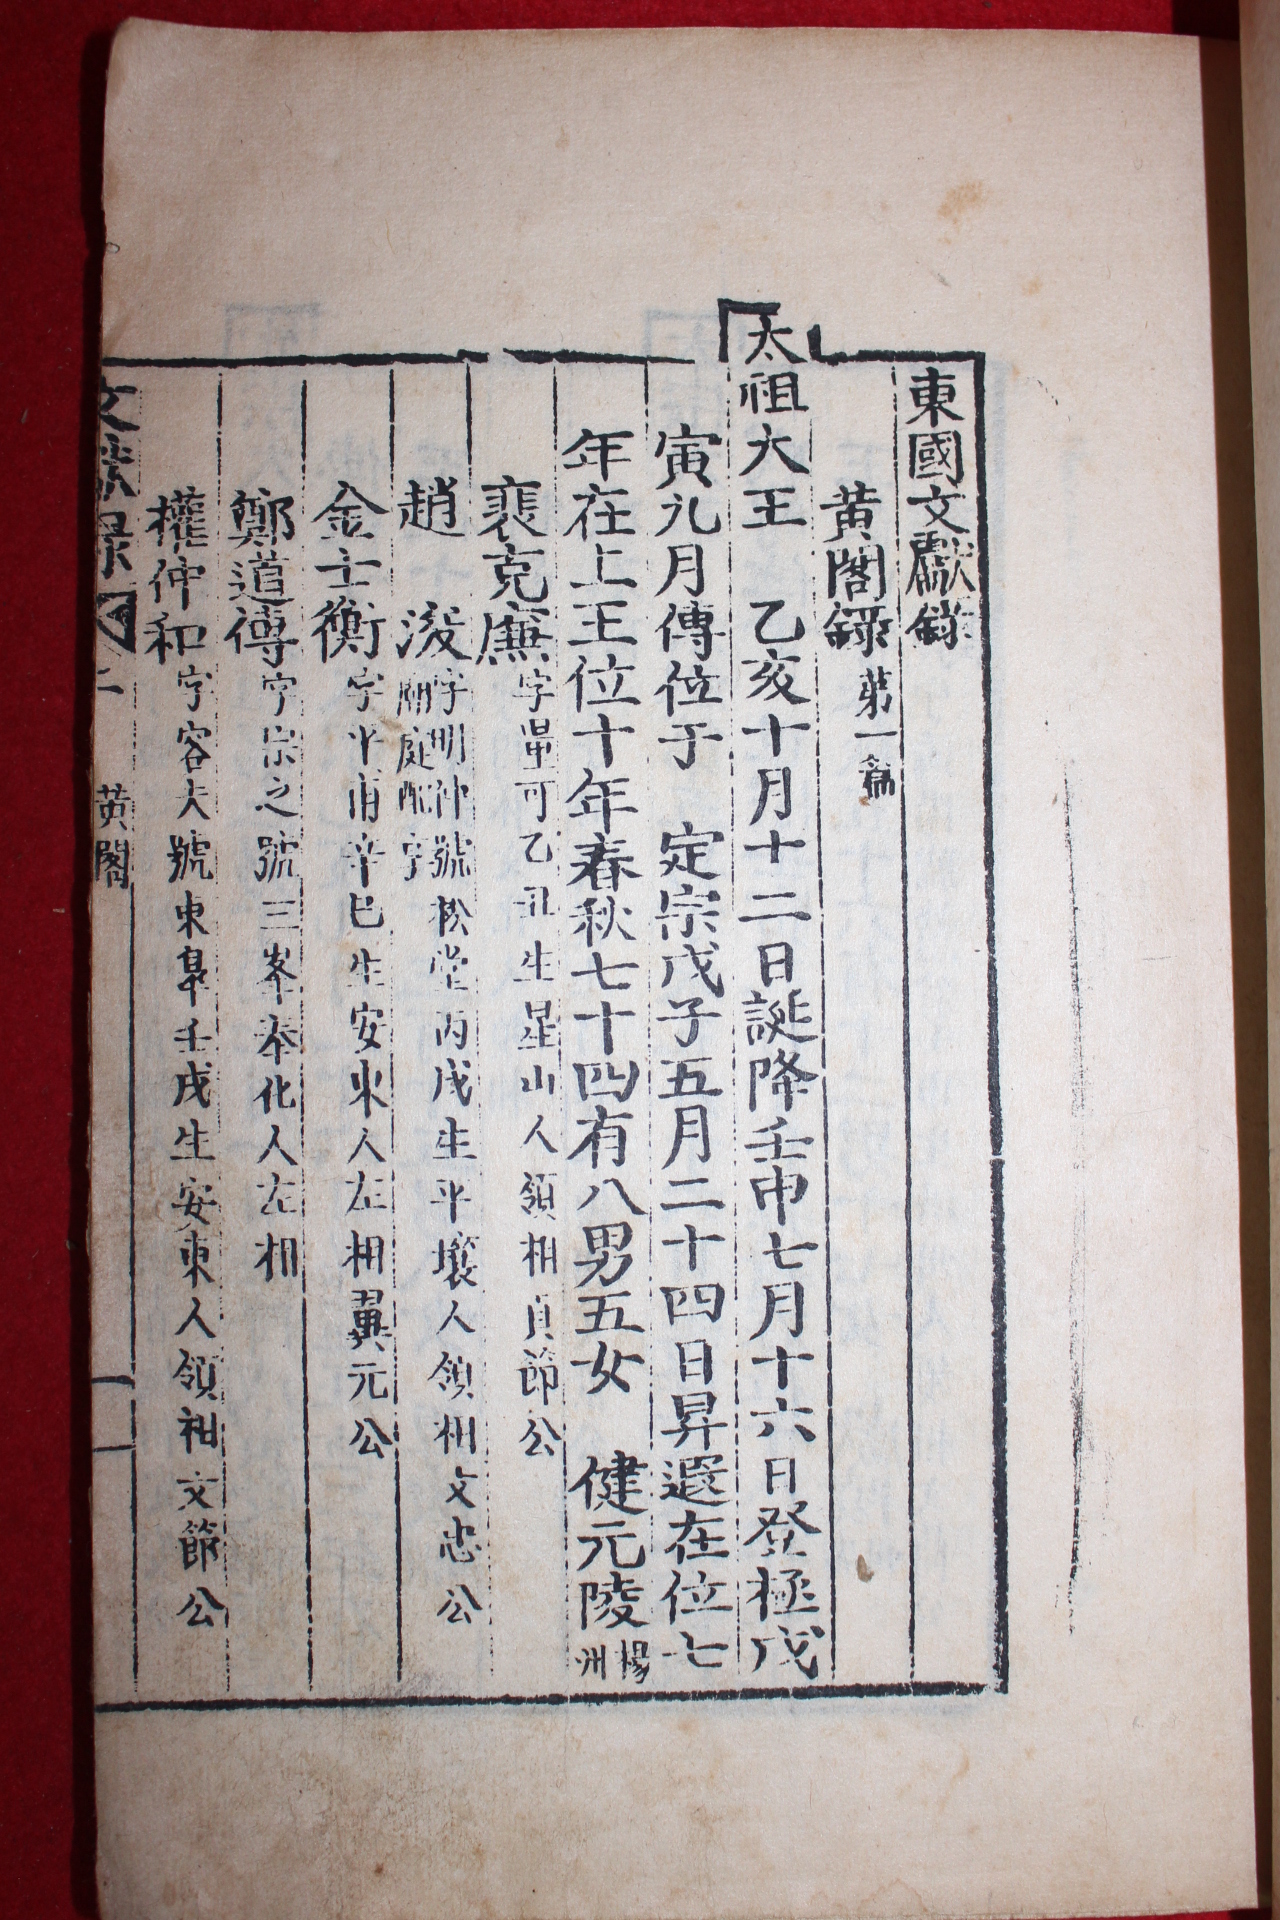 東國文獻錄
黃閣錄 第一篇
太祖大王 乙亥十月十二日誕降壬申七月十六日登極戊
寅九月傳位于 定宗戊子五月二十四日昇遐在位七
年在上王位十年春秋七十四有八男五女 健元陵 楊州
裵克廉 字量可乙丑生星山人領相貞節公
趙浚 字明仲號松堂丙戌生平壤人領相文忠公 廟庭配享
金士衡 字平甫辛巳生安東人左相翼元公
鄭道傳 字宗之號三峯奉化人左相
權仲和 字容夫號東皐壬戌生安東人領相文節公
文獻錄 上 黃閣 一